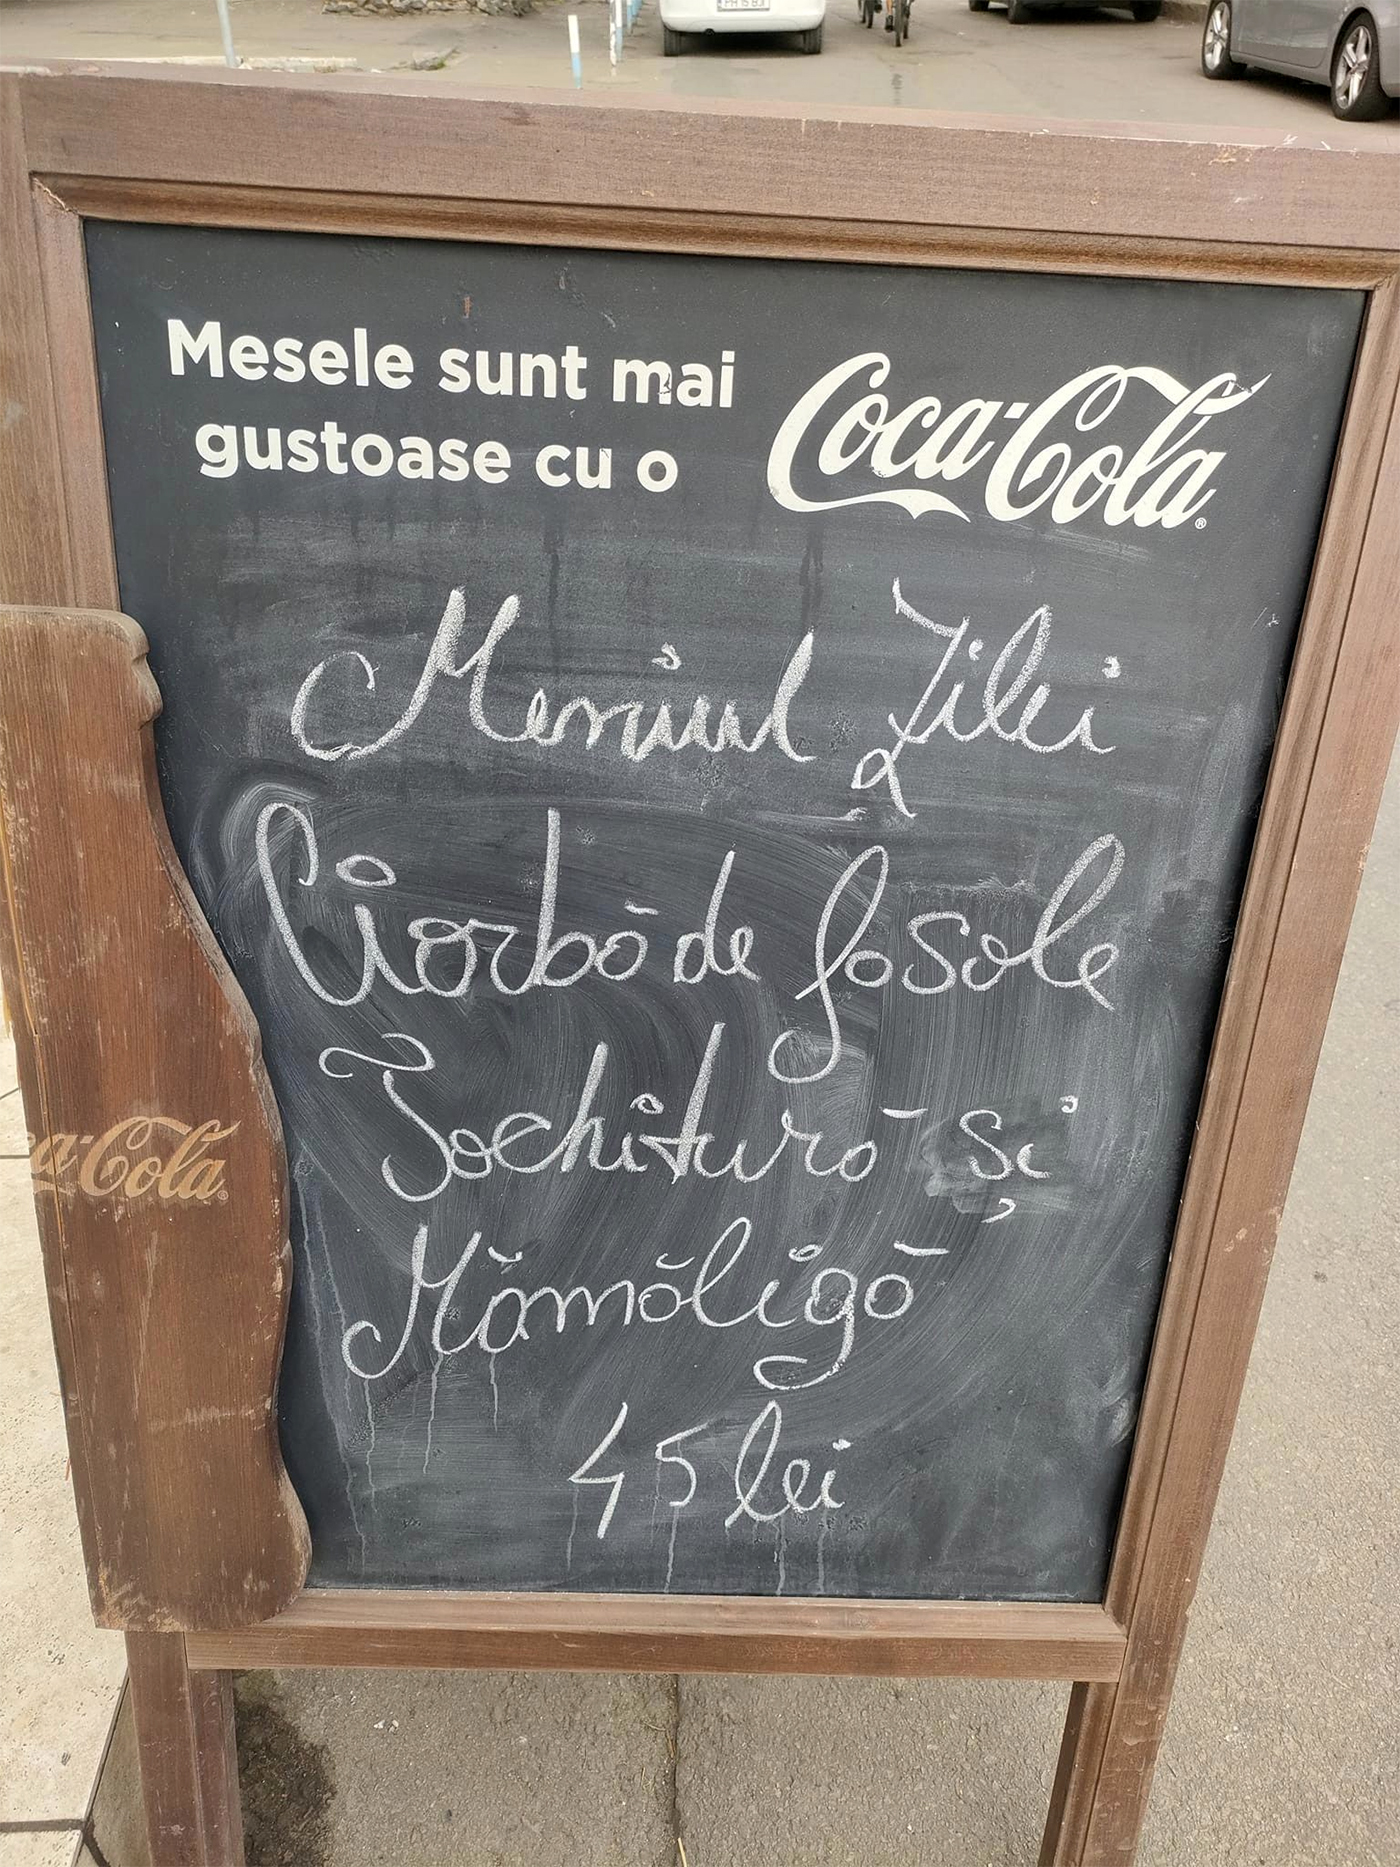 PH 15 BJI
Mesele sunt mai
gustoase cu o
Coca-Cola
Meniul Zilei
Ciorbă de fasole
Tochitură și
Mămăligă
45 lei
ca-Cola